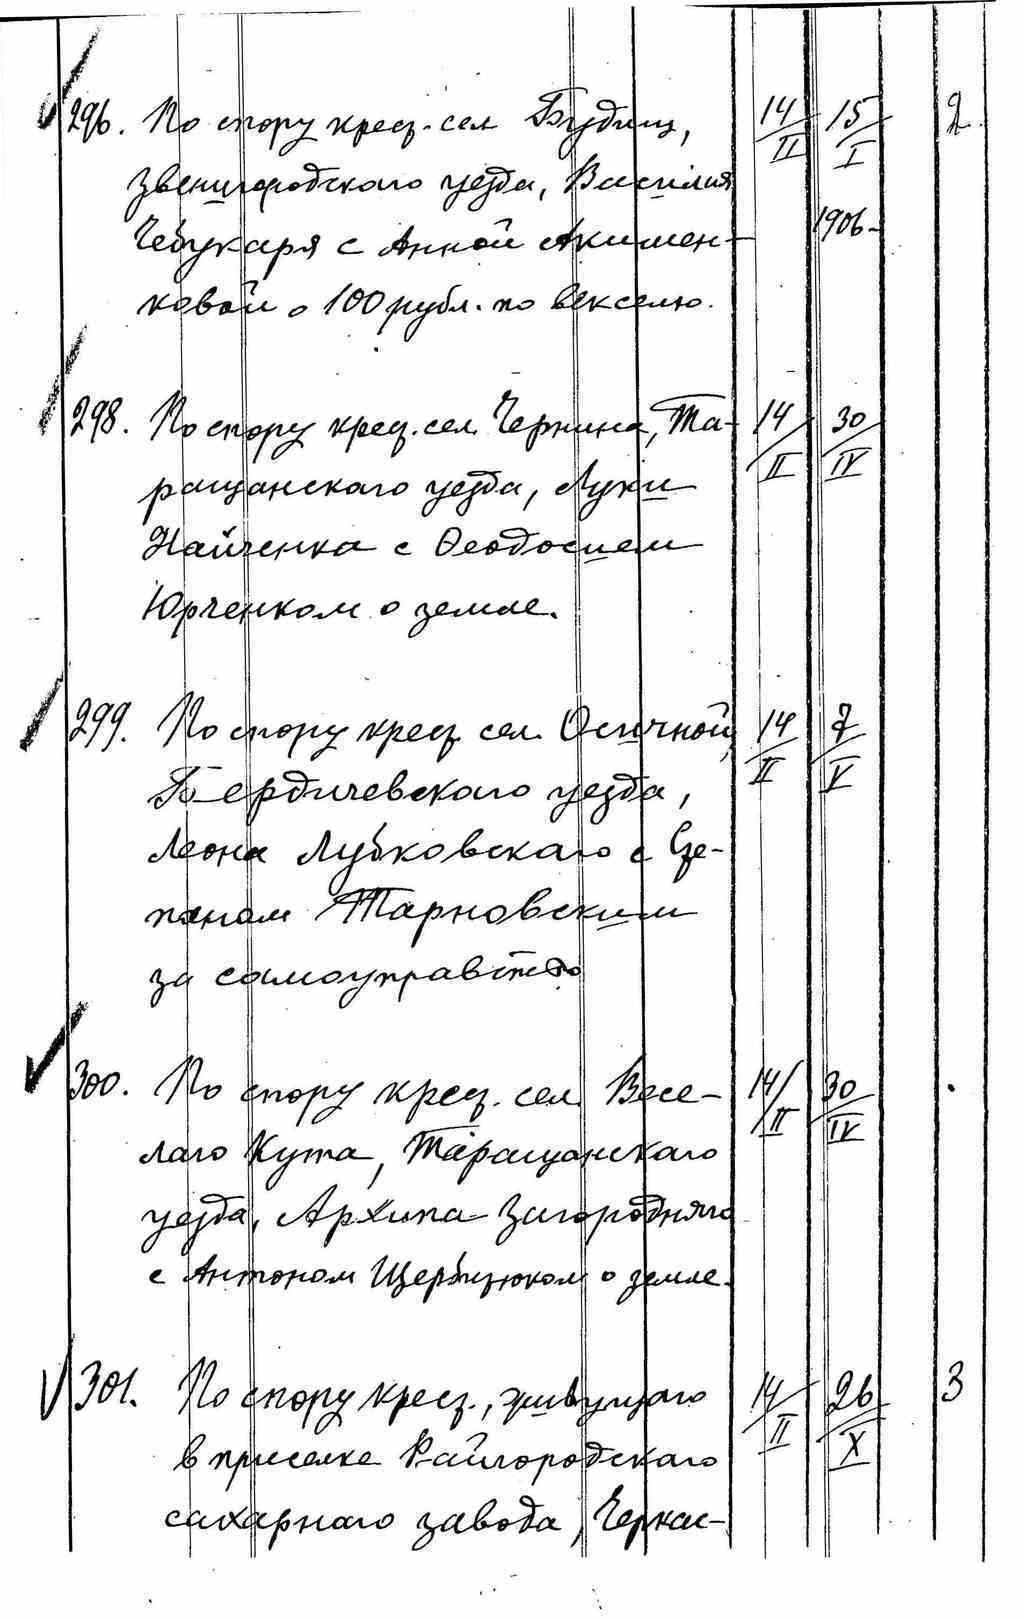 296. По спору крес. сел Будищ, 14/II 15/I 2
Звенигородского уезда, Василия
Чебукаря с Анной Акимен- 1906-
ковой о 100 рубл. по векселю.
298. По спору крес. сел. Чернина, Та- 14/II 30/IV
ращанскаго уезда, Луки
Найченка с Феодосием
Юрченком о земле.
299. По спору крес. сел. Осичной, 14/II 7/V
Бердичевскаго уезда,
Леона Лубковскаго с Сте-
паном Тарновским
за самоуправство
300. По спору крес. сел. Весе- 14/II 30/IV
лаго Кута, Таращанскаго
уезда, Архипа Загородняго
с Антоном о земле.
301. По спору крес., живущаго 14/II 26/X 3
в приселке Райгородскаго
сахарнаго завода, Черкас-